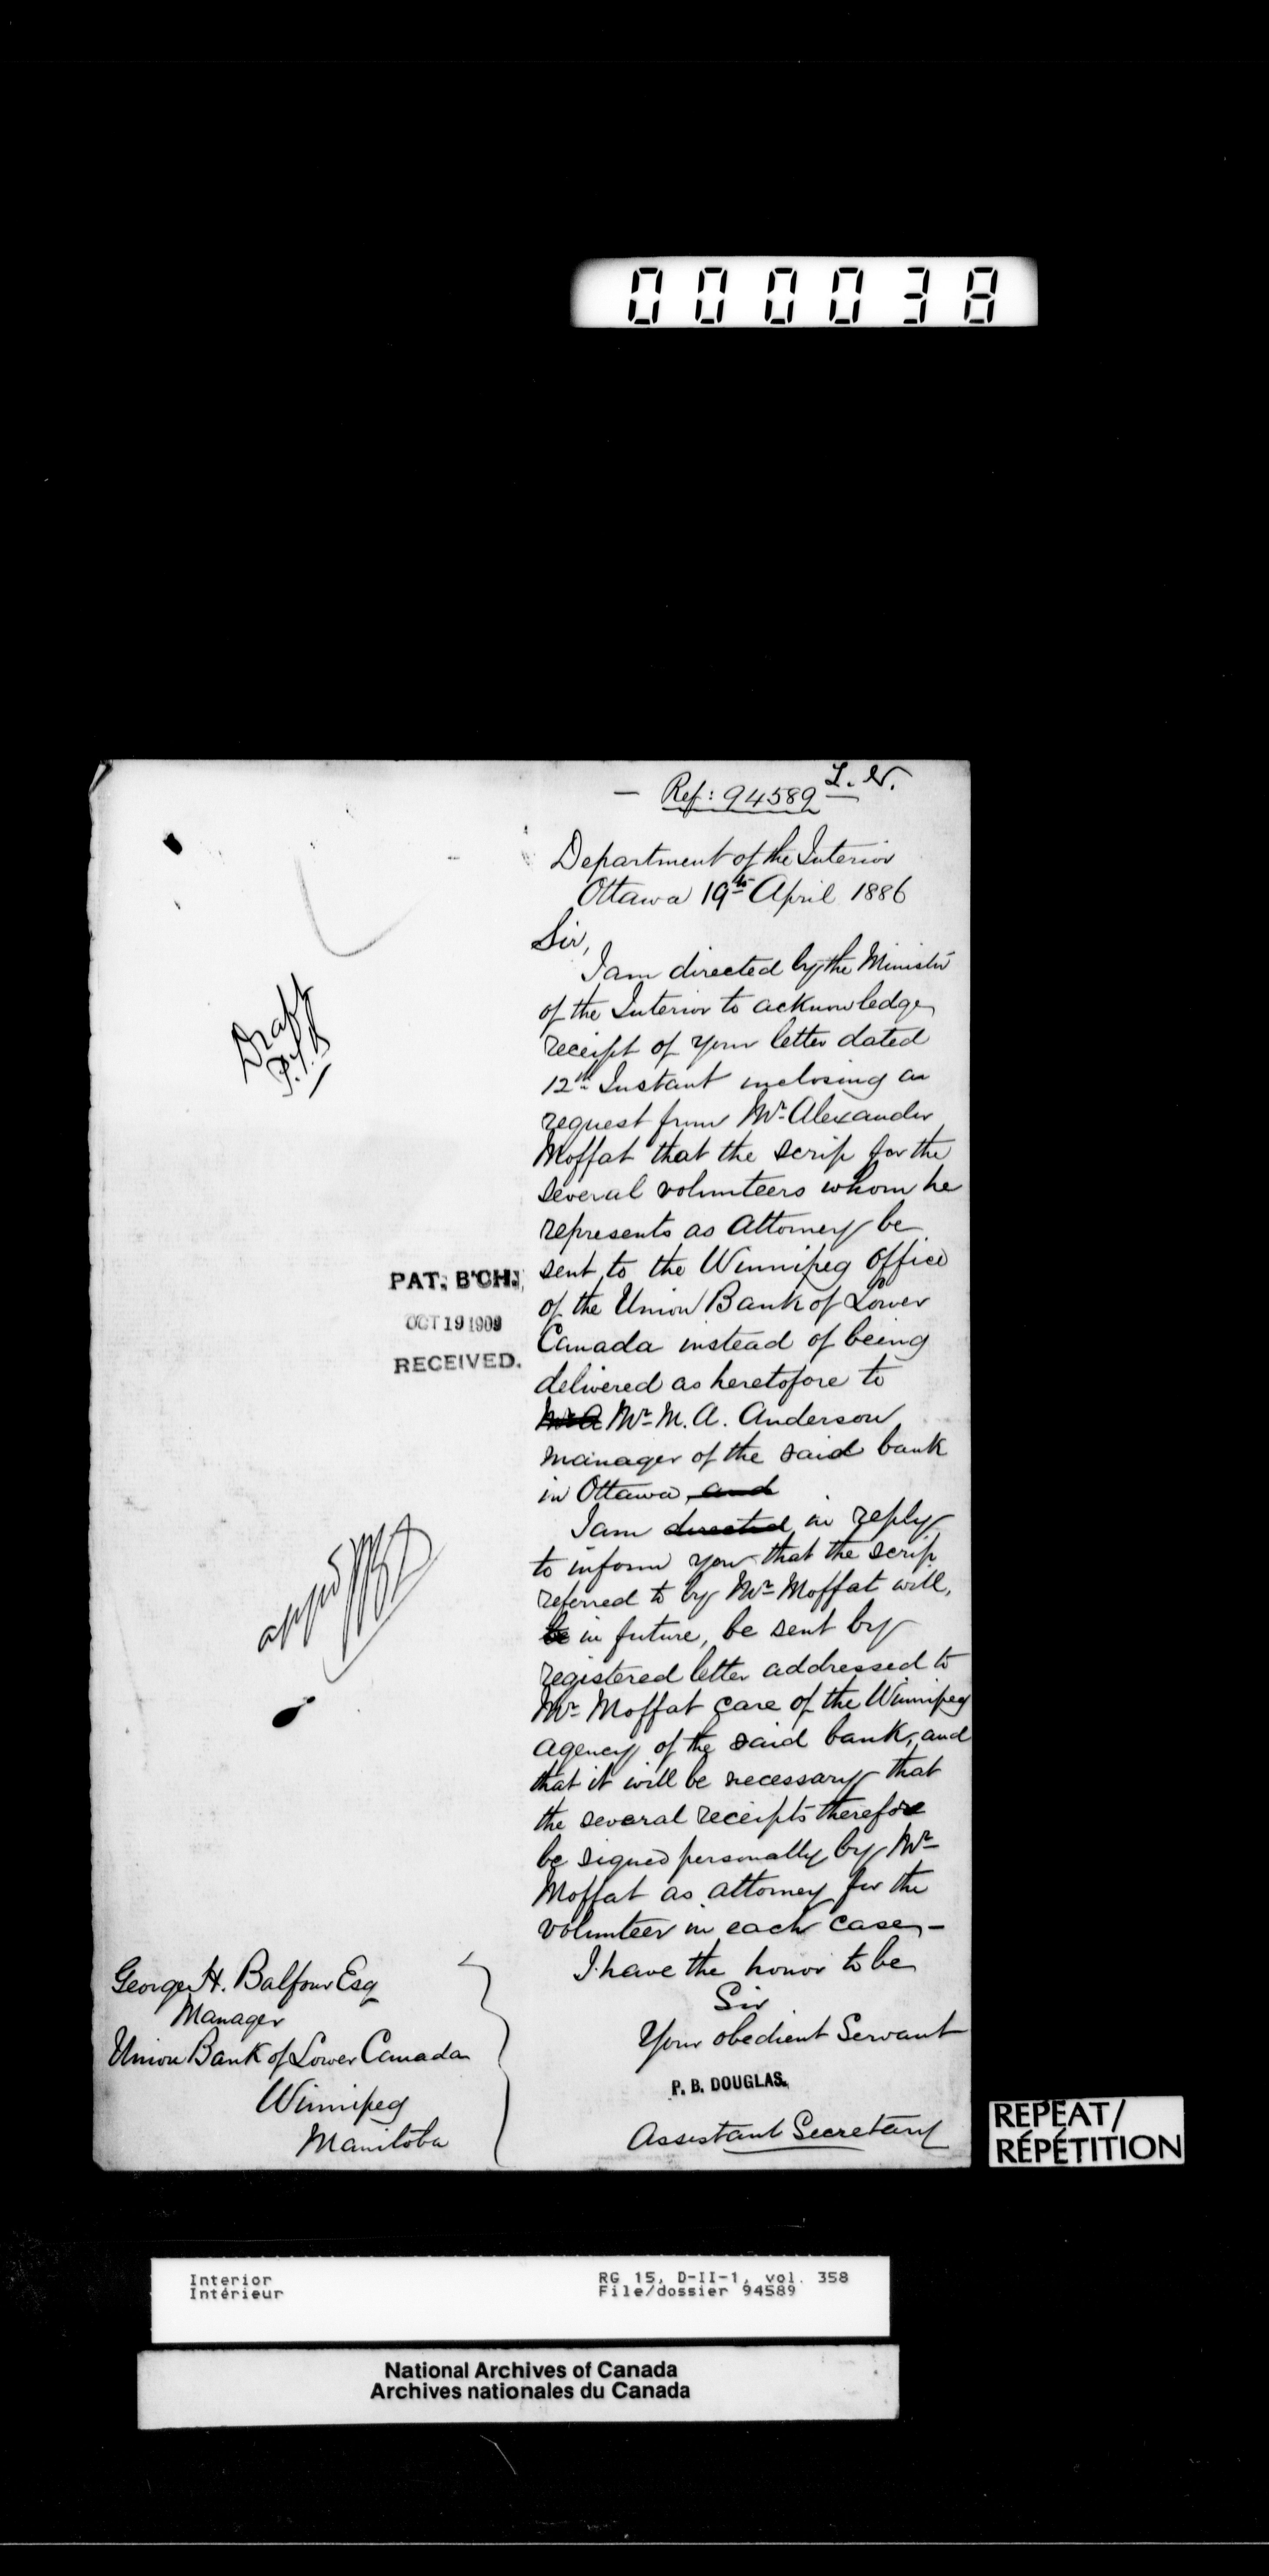 000038
Ref: 94589
Department of the Interior
Ottawa 19th April 1886
Sir,
I am directed by the Minister
of the Interior to acknowledge
receipt of your letter dated
12th Instant inclosing a
request from Mr Alexander
Moffat that the scrip for the
several volunteers whom he
represents as attorney be
sent to the Winnipeg office
of the Union Bank of Lower
Canada instead of being
delivered as heretofore to
Mr A Mr M. A. Anderson
manager of the said bank
in Ottawa, and
I am directed in reply
to inform you that the scrip
referred to by Mr Moffat will,
be in future, be sent by
registered letter addressed to
Mr Moffat care of the Winnipeg
agency of the said bank, and
that it will be necessary that
the several receipts therefore
be signed personally by Mr
Moffat as attorney for the
volunteer in each case,-
I have the honor to be
Sir
Your obedient Servant
P. B. DOUGLAS.
Assistant Secretary
Draft
PAT. B'CH.
OCT 19 1909
RECEIVED.
George H. Balfour Esq
Manager
Union Bank of Lower Canada
Winnipeg
Manitoba
REPEAT/
RÉPÉTITION
Interior
Intérieur
RG 15, D-II-1, vol. 358
File/dossier 94589
National Archives of Canada
Archives nationales du Canada